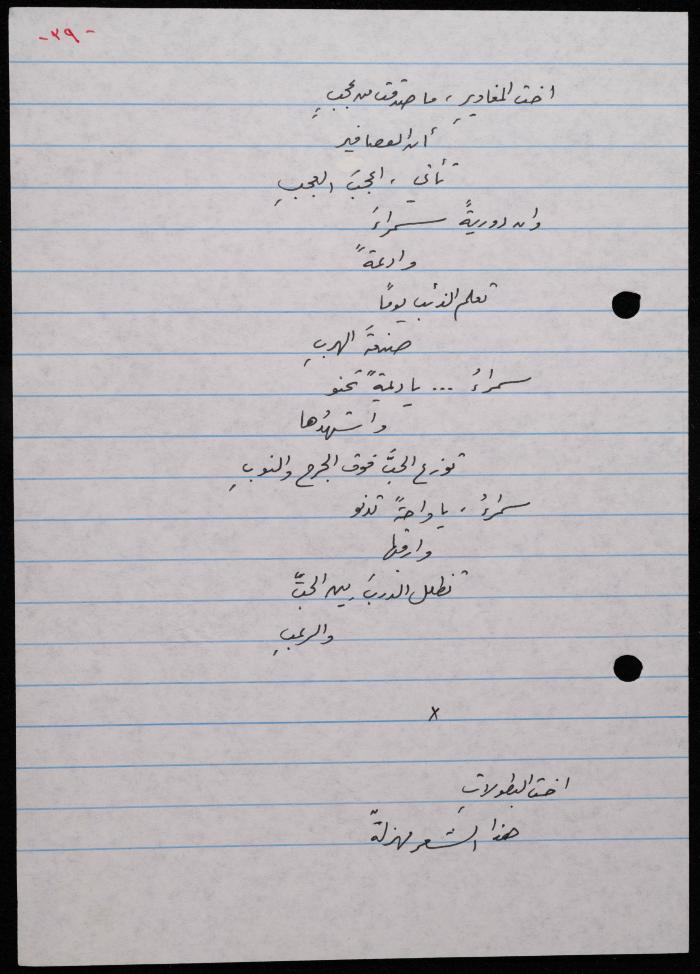 -٣٩-
اختَ المغاويرِ، ما صدّقت من عجبٍ
أن العصافير
تأتي، اعجبَ العجبِ
وان دوريةً سمراءَ
وادعةً
تعلم الذئب يومًا
صنعةَ الهربِ
سمراءُ ... يا ديمةً تحنو
واشهدُها
توزع الحبَّ فوق الجرح والنوبِ
سمراءُ، يا واحةً تدنو
وارقبها
تظلل الدربَ بين الحبِّ
والرعبِ
x
اختَ البطولاتِ
هذا الشعر مهزلةٌ